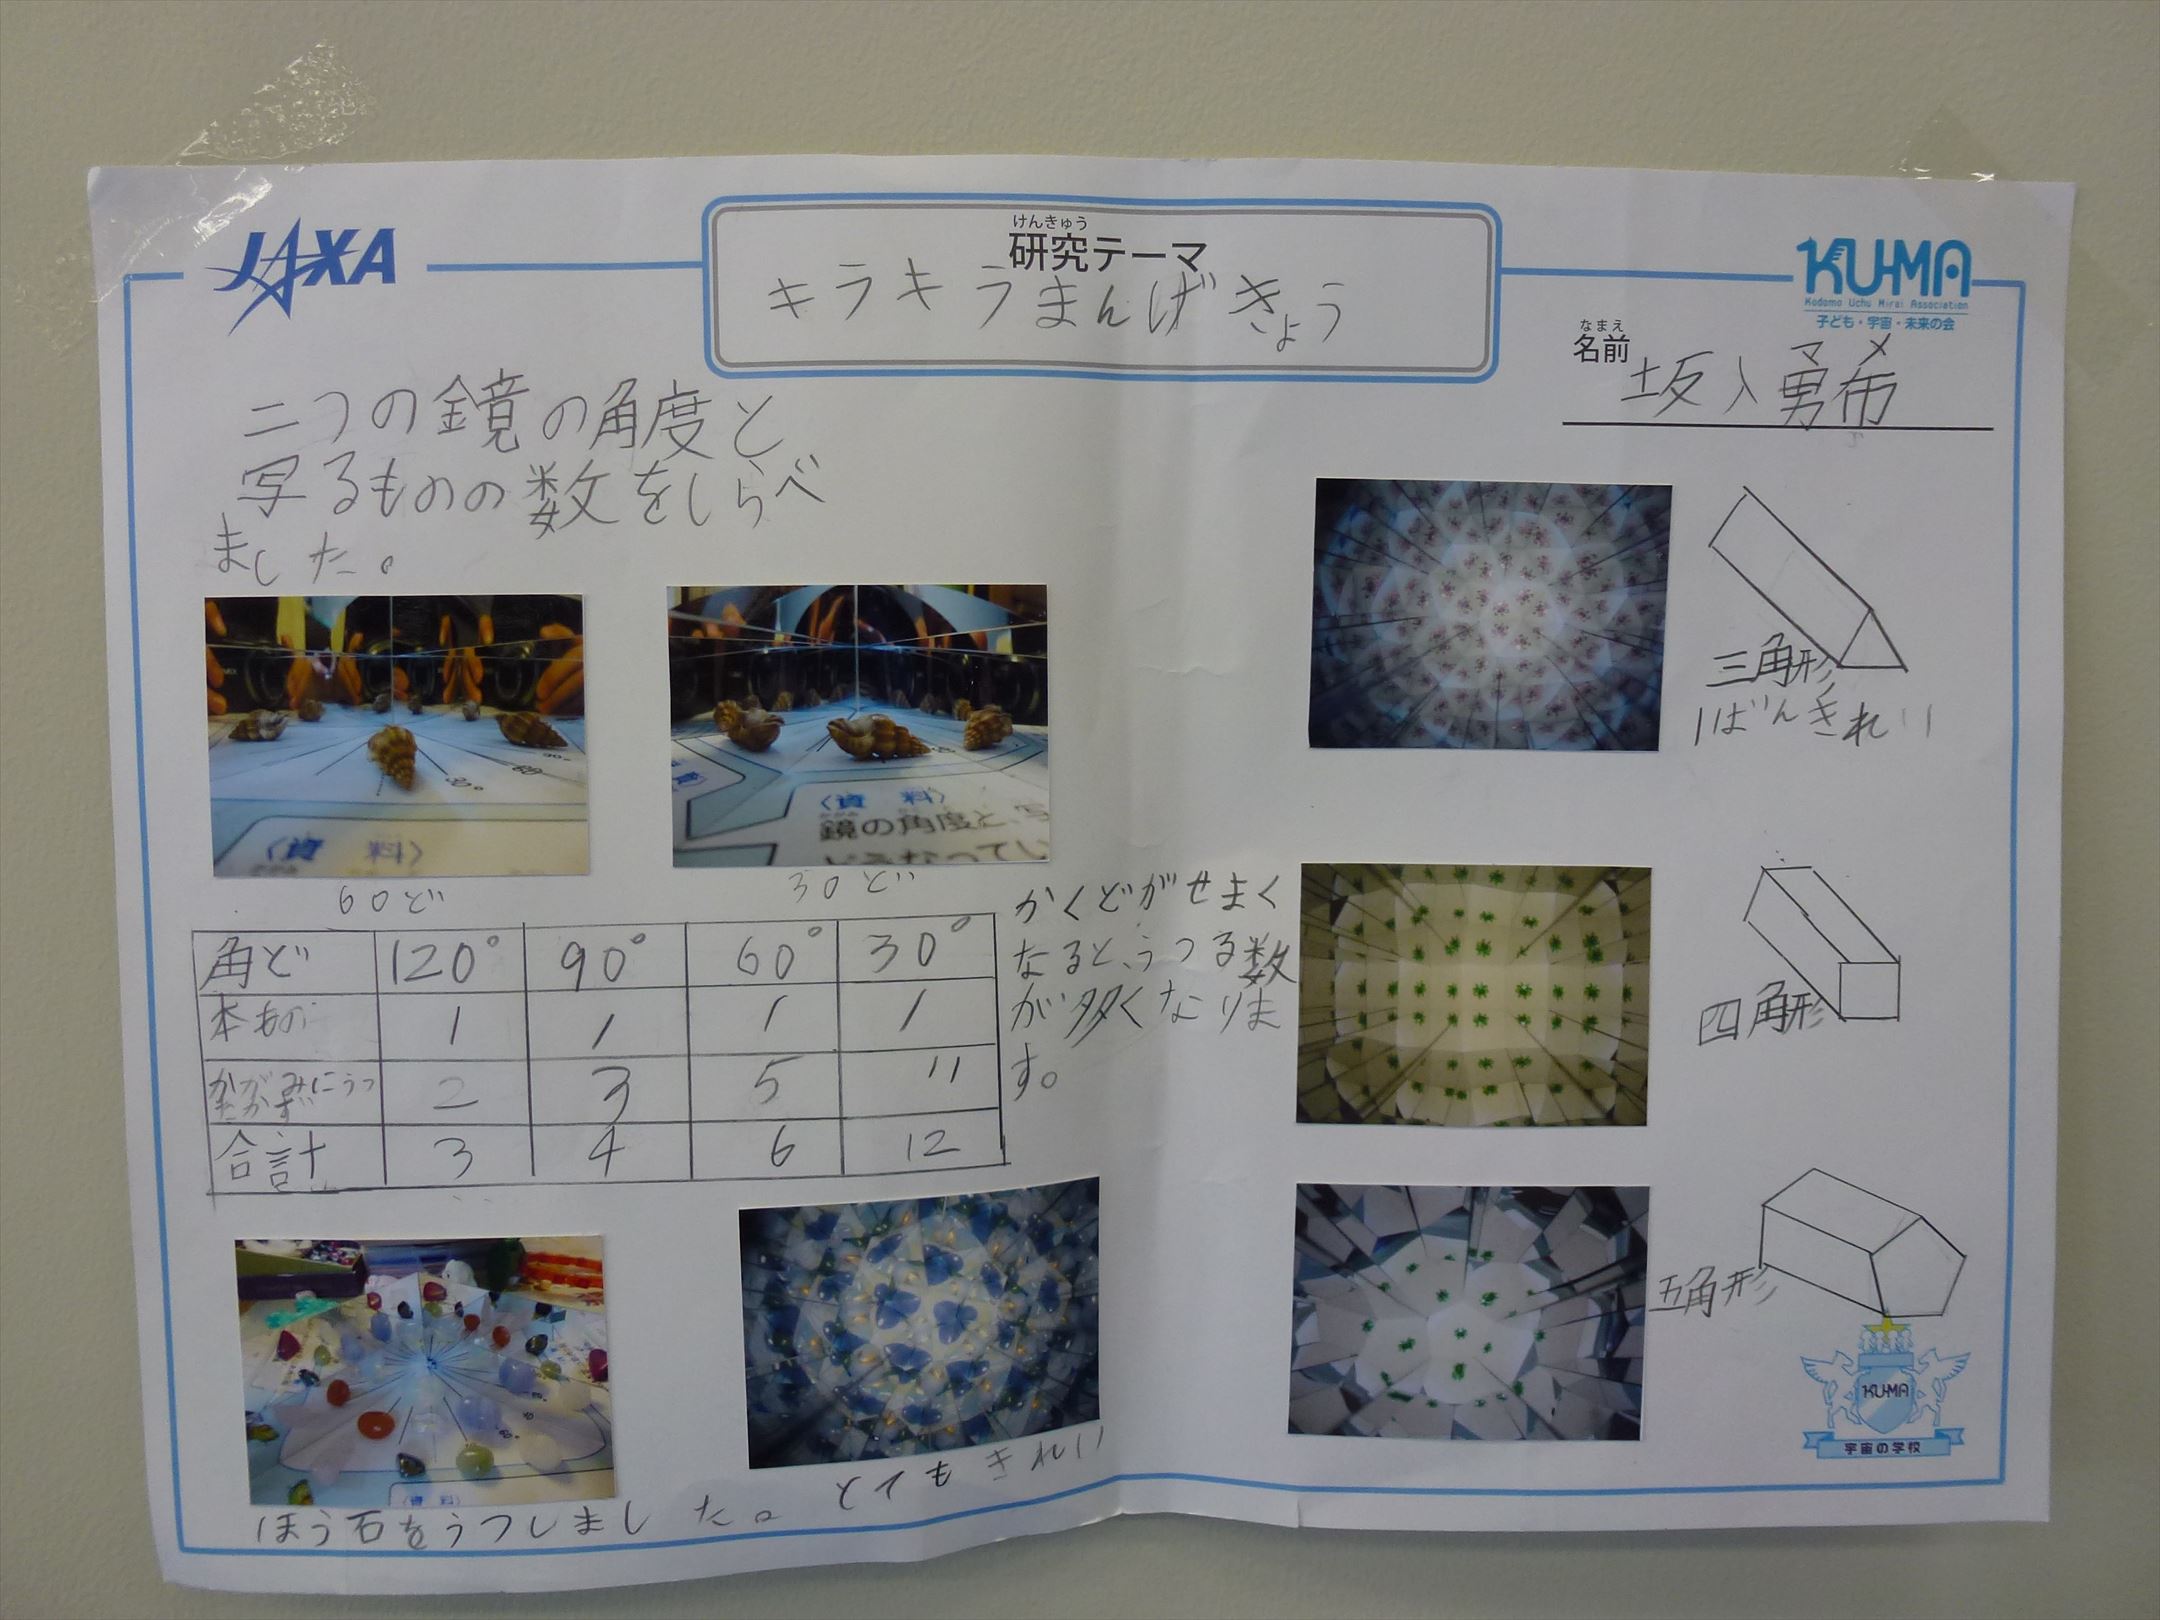 JAXA
けんきゅう
研究テーマ
キラキラまんげきょう
KU-MA
Kodomo Uchu Mirai Association
子ども・宇宙・未来の会
なまえ
名前
坂入勇希
二つの鏡の角度と
写るものの数をしらべ
ました。
〈資 料〉
60ど
〈資 料〉
鏡の角度と、写
どうなってい
30ど
角ど 120° 90° 60° 30°
本もの 1 1 1 1
かがみにうつ
たかず 2 3 5 11
合計 3 4 6 12
かくどがせまく
なると、うつる数
が多くなりま
す。
ほう石をうつしました。
とてもきれい
三角形
1ばんきれい
四角形
五角形
KU-MA
宇宙の学校